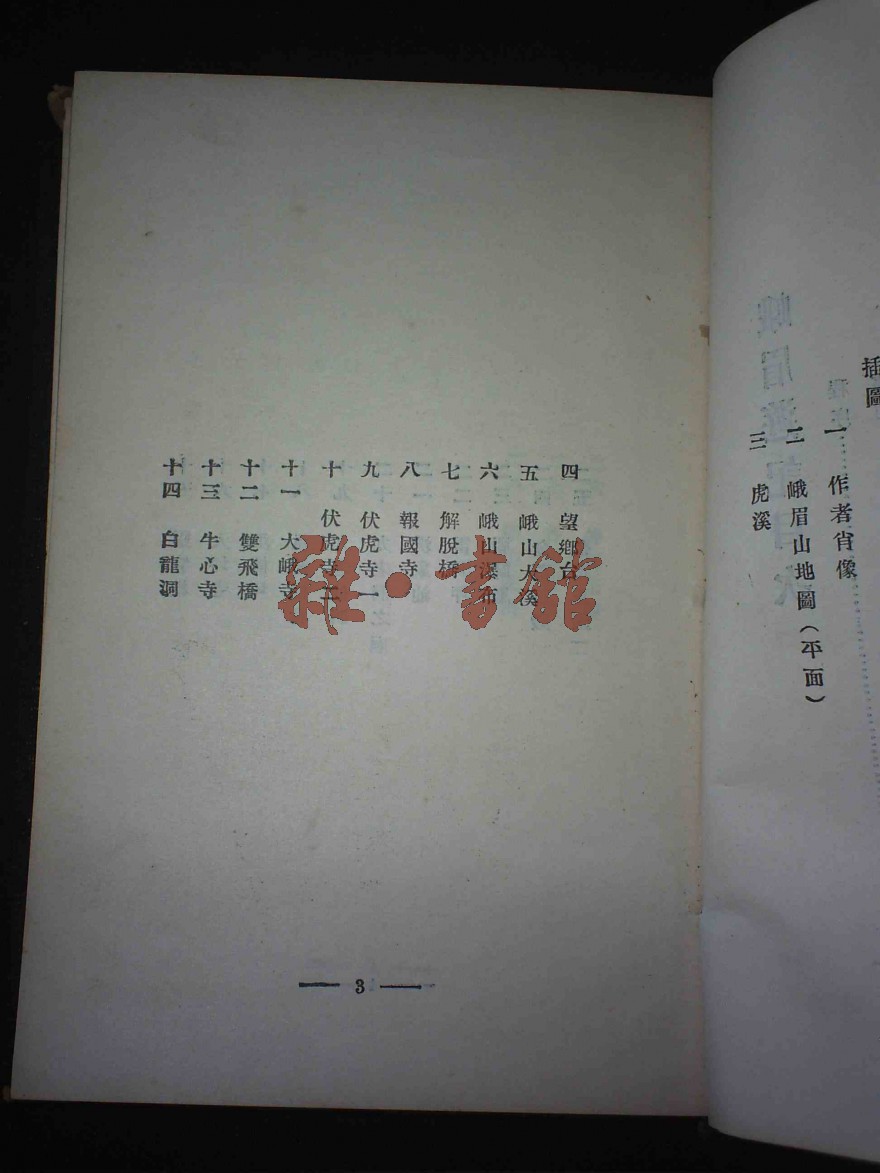 插圖
一 作者肖像
二 峨眉山地圖（平面）
三 虎溪
四 望鄉台
五 峨山大溪
六 峨山瀑布
七 解脫橋
八 報國寺
九 伏虎寺一
十 伏虎寺二
十一 大峨寺
十二 雙飛橋
十三 牛心寺
十四 白龍洞
3
雜·書館